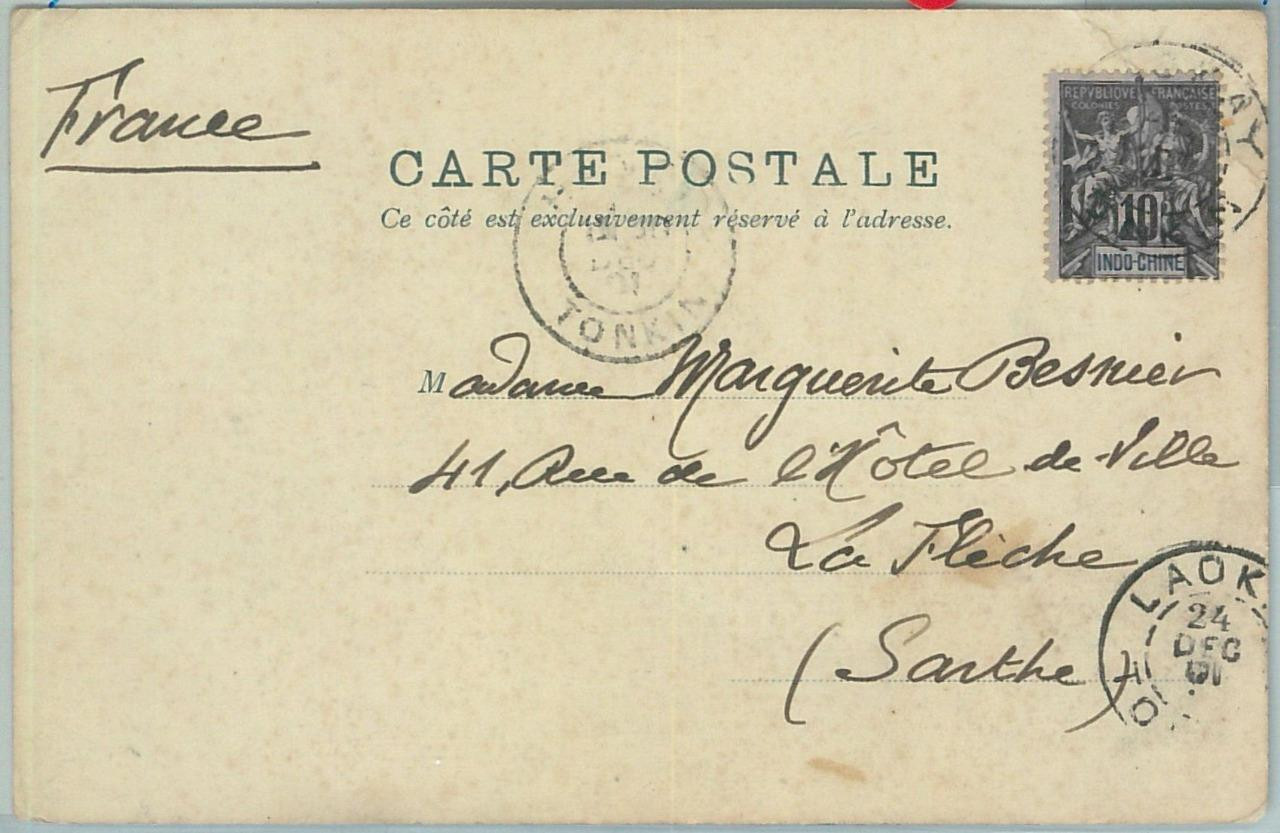 France
REPVBLIQVE FRANÇAISE
COLONIES POSTES
10
INDO-CHINE
CARTE POSTALE
Ce côté est exclusivement réservé à l'adresse.
DEC
01
TONKIN
Madame Marguerite Besnier
41, Rue de l'Hôtel de-Ville
La Flèche
(Sarthe)
24
DEC
01